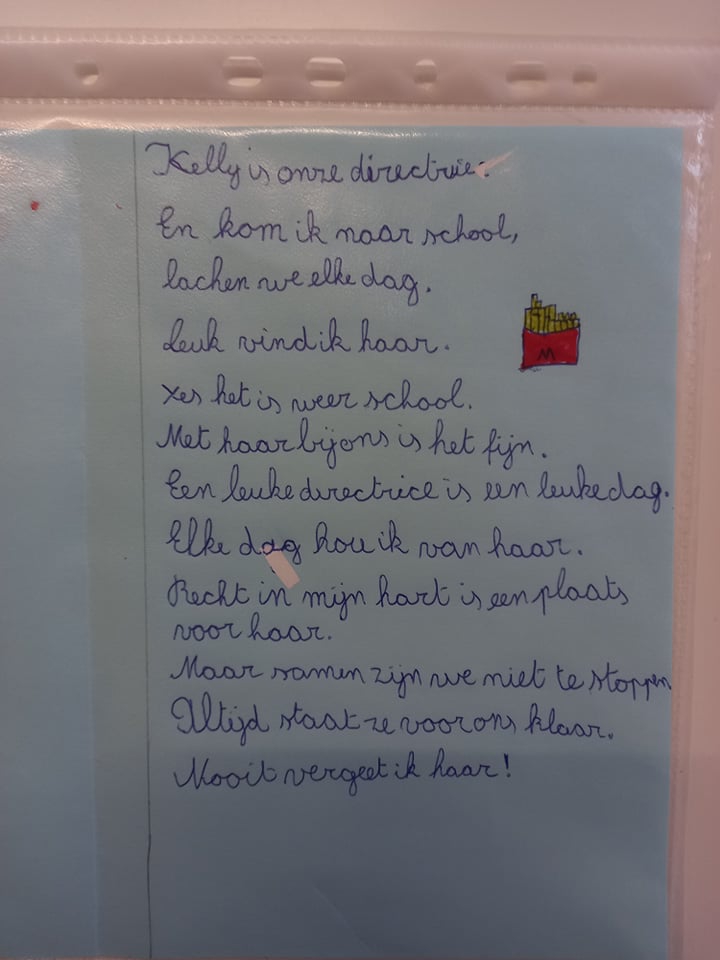 Kelly is onze directrie.
En kom ik naar school,
lachen we elke dag.
Leuk vind ik haar.
M
Yes het is weer school.
Met haar bij ons is het fijn.
Een leuke directrice is een leuke dag.
Elke dag hou ik van haar.
Recht in mijn hart is een plaats
voor haar.
Maar samen zijn we niet te stoppen.
Altijd staat ze voor ons klaar.
Nooit vergeet ik haar!